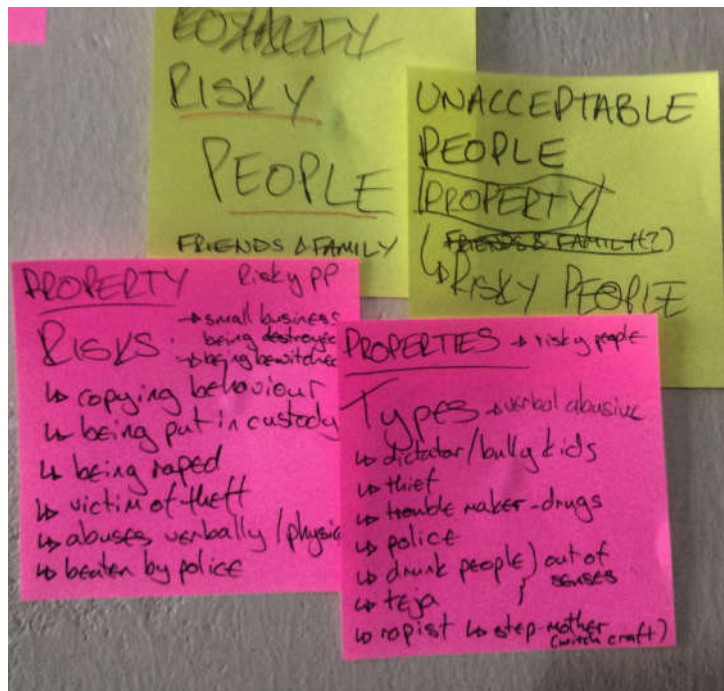 EQUALITY
RISKY
PEOPLE
FRIENDS & FAMILY
UNACCEPTABLE
PEOPLE
PROPERTY
FRIENDS & FAMILY(?)
↳ RISKY PEOPLE
PROPERTY Risky PP
RISKS. → small business
being destroyed
→ being bewitched
↳ copying behaviour
↳ being put in custody
↳ being raped
↳ victim of theft
↳ abuses verbally / physic
↳ beaten by police
PROPERTIES → risky people
Types → verbal abusive
↳ dictator/bully kids
↳ thief
↳ trouble maker - drugs
↳ police
↳ drunk people) out of
senses
↳ teja
↳ rapist ↳ step-mother
(witch craft)